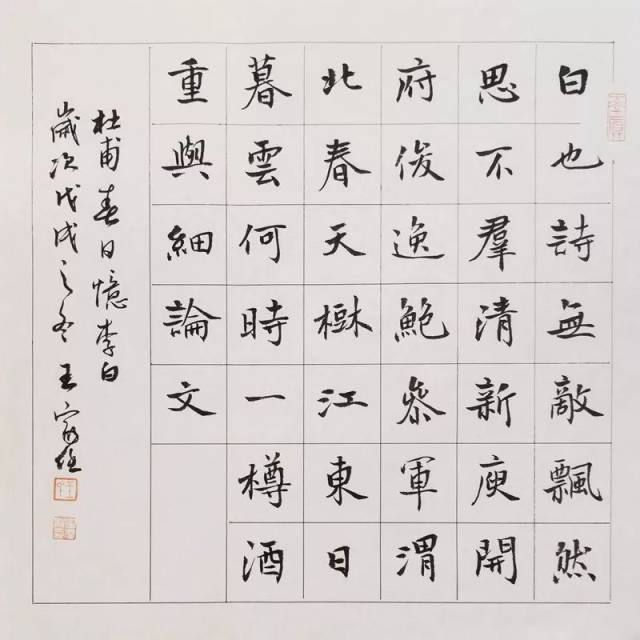 白也詩無敵飄然
思不羣清新庾開
府俊逸鮑參軍渭
北春天樹江東日
暮雲何時一樽酒
重與細論文
杜甫春日憶李白
歲次戊戌之冬王